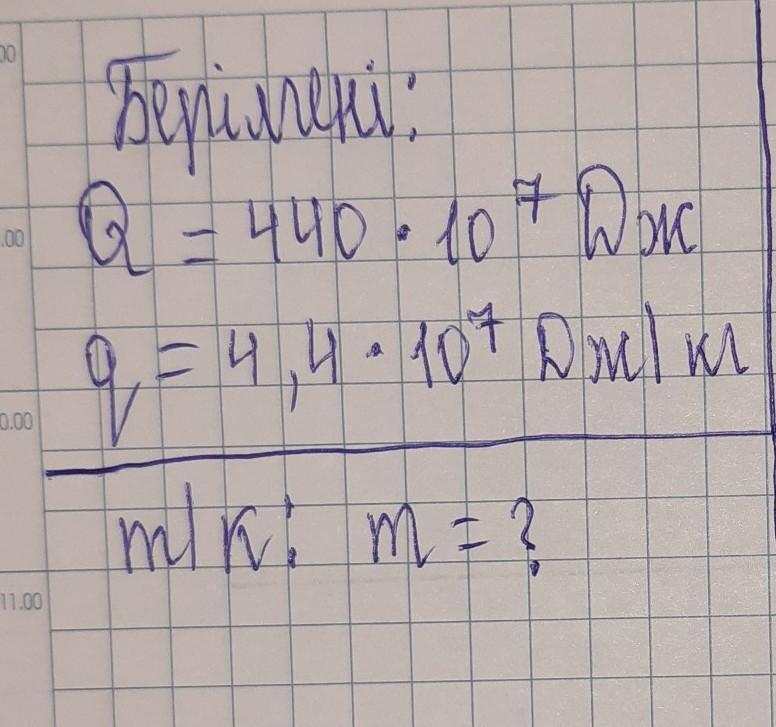 00
Берілгені:
.00
Q = 440 · 10⁷ Дж
q = 4,4 · 10⁷ Дж/кг
0.00
т/к: m = ?
11.00